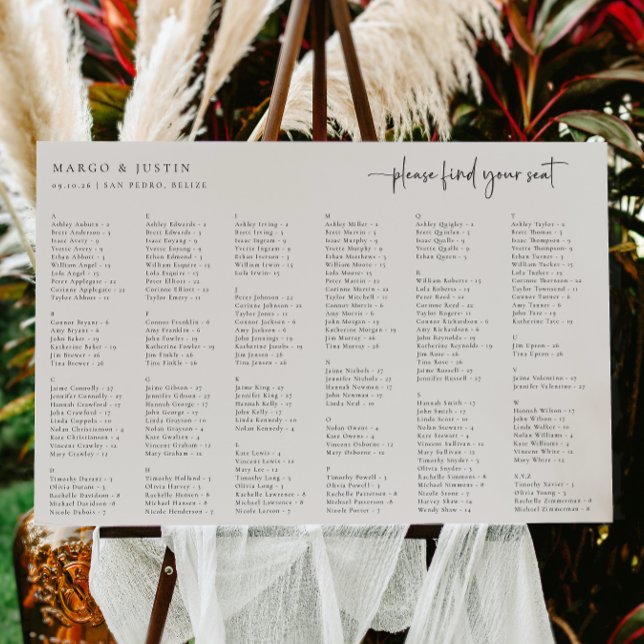 MARGO & JUSTIN
09.10.26 | SAN PEDRO, BELIZE
please find your seat
A
Ashley Auburn - 2
Brett Anderson - 3
Isaac Avery - 9
Yvette Avery - 9
Ethan Abbott - 2
William Angel - 15
Lola Angel - 15
Peter Applegate - 22
Corinne Applegate - 22
Taylor Abbott - 11
B
Connor Bryant - 6
Amy Bryant - 6
John Baker - 19
Katherine Baker - 19
Jim Brewer - 26
Tina Brewer - 26
C
Jaime Connolly - 27
Jennifer Connolly - 27
Hannah Crawford - 17
John Crawford - 17
Linda Coppola - 10
Nolan Christensen - 4
Kate Christianson - 4
Vincent Crawley - 12
Mary Crawley - 12
D
Timothy Durant - 3
Olivia Durant - 3
Rachelle Davidson - 8
Michael Davidson - 8
Nicole Dubois - 7
E
Ashley Edwards - 2
Brett Edwards - 3
Isaac Eoyang - 9
Yvette Eoyang - 9
Ethan Edmond - 3
William Esquire - 15
Lola Esquire - 15
Peter Elliott - 22
Corinne Elliott - 22
Taylor Emery - 11
F
Connor Franklin - 6
Amy Franklin - 6
John Fowler - 19
Katherine Fowler - 19
Jim Finkle - 26
Tina Finkle - 26
G
Jaime Gibson - 27
Jennifer Gibson - 27
Hannah George - 17
John George - 17
Linda Grayson - 10
Nolan Grayson - 4
Kate Gwalten - 4
Vincent Graham - 12
Mary Graham - 12
H
Timothy Holland - 3
Olivia Harvey - 3
Rachelle Hansen - 8
Michael Hansen - 8
Nicole Henderson - 7
I
Ashley Irving - 2
Brett Irving - 3
Isaac Ingram - 9
Yvette Ingram - 9
Ethan Iverson - 3
William Irwin - 15
Lola Irwin - 15
J
Peter Johnson - 22
Corinne Johnson - 22
Taylor Jones - 11
Connor Jackson - 6
Amy Jackson - 6
John Jennings - 19
Katherine Jacobs - 19
Jim Jensen - 26
Tina Jensen - 26
K
Jaime King - 27
Jennifer King - 27
Hannah Kelly - 17
John Kelly - 17
Linda Kennedy - 10
Nolan Kennedy - 4
L
Kate Lewis - 4
Vincent Lewis - 12
Mary Lee - 12
Timothy Long - 3
Olivia Long - 3
Rachelle Lawrence - 8
Michael Lawrence - 8
Nicole Larson - 7
M
Ashley Miller - 2
Brett Martin - 3
Isaac Murphy - 9
Yvette Murphy - 9
Ethan Matthews - 3
William Moore - 15
Lola Moore - 15
Peter Martin - 22
Corinne Martin - 22
Taylor Mitchell - 11
Connor Morris - 6
Amy Morris - 6
John Morgan - 19
Katherine Morgan - 19
Jim Murray - 26
Tina Murray - 26
N
Jaime Nichols - 27
Jennifer Nichols - 27
Hannah Newman - 17
John Newman - 17
Linda Neal - 10
O
Nolan Owens - 4
Kate Owens - 4
Vincent Osborne - 12
Mary Osborne - 12
P
Timothy Powell - 3
Olivia Powell - 3
Rachelle Patterson - 8
Michael Patterson - 8
Nicole Porter - 7
Q
Ashley Quigley - 2
Brett Quinlan - 3
Isaac Qualls - 9
Yvette Qualls - 9
Ethan Queen - 3
R
William Roberts - 15
Lola Roberts - 15
Peter Reed - 22
Corinne Reed - 22
Taylor Rogers - 11
Connor Richardson - 6
Amy Richardson - 6
John Reynolds - 19
Katherine Reynolds - 19
Jim Rose - 26
Tina Rose - 26
Jaime Russell - 27
Jennifer Russell - 27
S
Hannah Smith - 17
John Smith - 17
Linda Scott - 10
Nolan Stewart - 4
Kate Stewart - 4
Vincent Sullivan - 12
Mary Sullivan - 12
Timothy Snyder - 3
Olivia Snyder - 3
Rachelle Simmons - 8
Michael Simmons - 8
Nicole Stone - 7
Harvey Shaw - 14
Wendy Shaw - 14
T
Ashley Taylor - 2
Brett Thomas - 3
Isaac Thompson - 9
Yvette Thompson - 9
Ethan Turner - 3
William Tucker - 15
Lola Tucker - 15
Corinne Thornton - 22
Taylor Townsend - 11
Connor Turner - 6
Amy Tanner - 6
John Tate - 19
Katherine Tate - 19
U
Jim Upton - 26
Tina Upton - 26
V
Jaime Valentino - 27
Jennifer Valentino - 27
W
Hannah Wilson - 17
John Wilson - 17
Linda Walker - 10
Nolan Williams - 4
Kate Williams - 4
Vincent White - 12
Mary White - 12
X,Y,Z
Timothy Xavier - 3
Olivia Young - 3
Rachelle Zimmerman - 8
Michael Zimmerman - 8